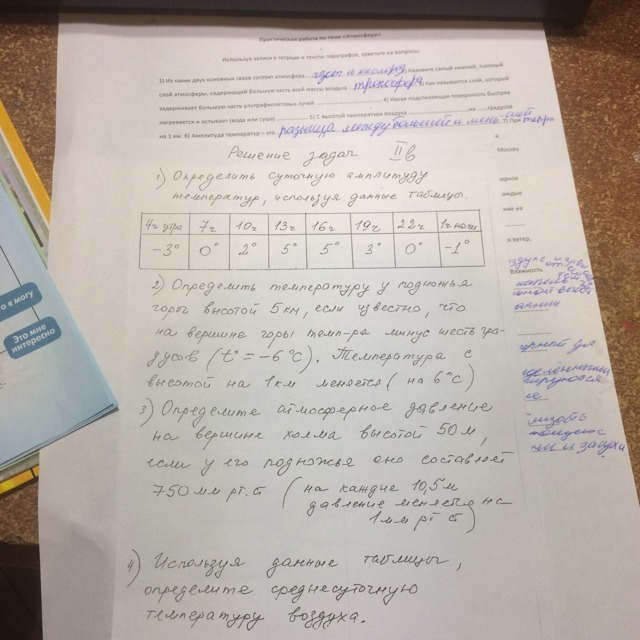 Практическая работа по теме «Атмосфера»
Используя записи в тетради и тексты параграфов, ответьте на вопросы:
1) Из каких двух основных газов состоит атмосфера азот и кислород 2) Назовите самый нижний, плотный
слой атмосферы, содержащий большую часть всей массы воздуха тропосфера 3) Как называется слой, который
задерживает большую часть ультрафиолетовых лучей 4) Какая подстилающая поверхность быстрее
нагревается и остывает (вода или суша) 5) С высотой температура воздуха на градусов
на 1 км. 6) Амплитуда температур – это разница между большей и мень 7) При
Москву
Решение задач IIв
1) Определить суточную амплитуду
температур, используя данные таблицы.
4ч утра 7ч 10ч 13ч 16ч 19ч 22ч 1ч ночи
-3° 0° 2° 5° 5° 3° 0° -1°
2) Определить температуру у подножья
горы высотой 5 км, если известно, что
на вершине горы темп-ра минус шесть гра-
дусов (t° = -6°C). Температура с
высотой на 1 км меняется (на 6°C)
3) Определите атмосферное давление
на вершине холма высотой 50 м,
если у его подножья оно составляет
750 мм рт. ст (на каждые 10,5 м
давление меняется на
1 мм рт ст)
4) Используя данные таблицы,
определите среднесуточную
температуру воздуха.
ерное
аждые
ние на
и ветер,
Влажность
о я могу
Это мне
интересно